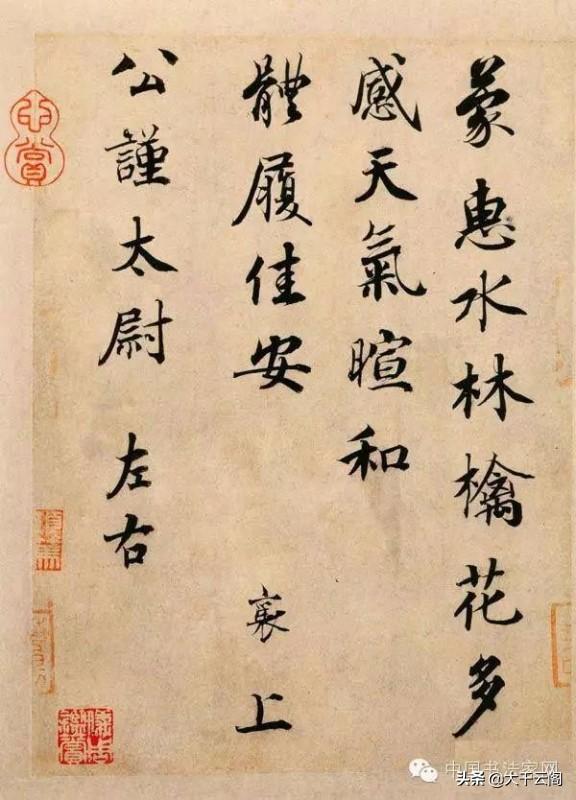 蒙惠水林檎花多
感天氣暄和
體履佳安
襄上
公謹太尉 左右
中国书法家网
头条 @大千云阁